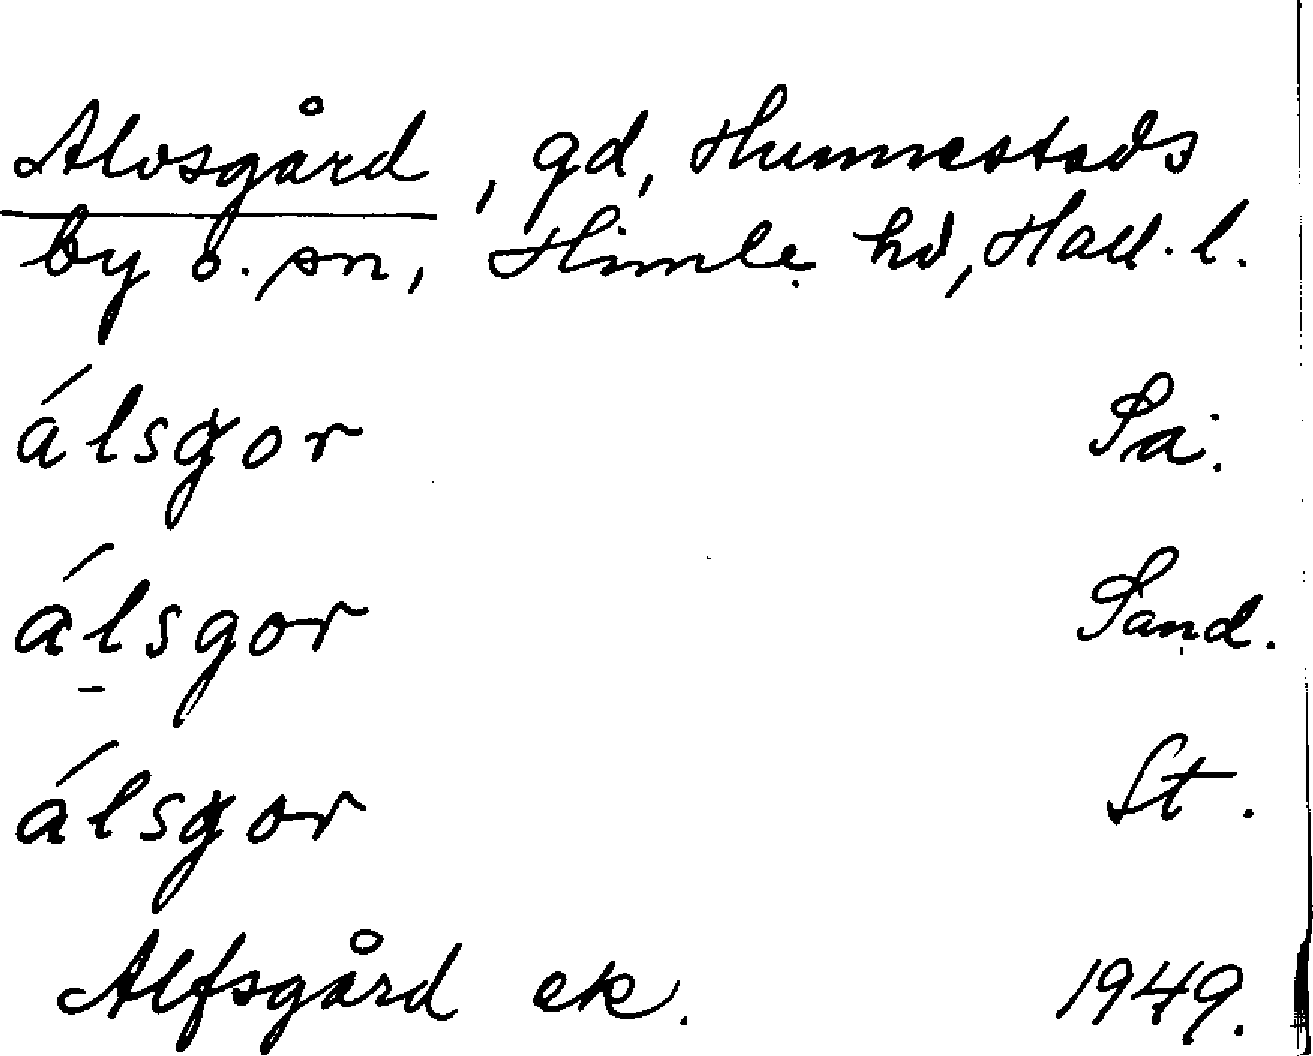 Alvsgård, gd, Hunnestads
by o. sn, Himle hd, Hall. l.
álsgor Sa.
álsgor Sand.
álsgor St.
Alfsgård ek. 1949.